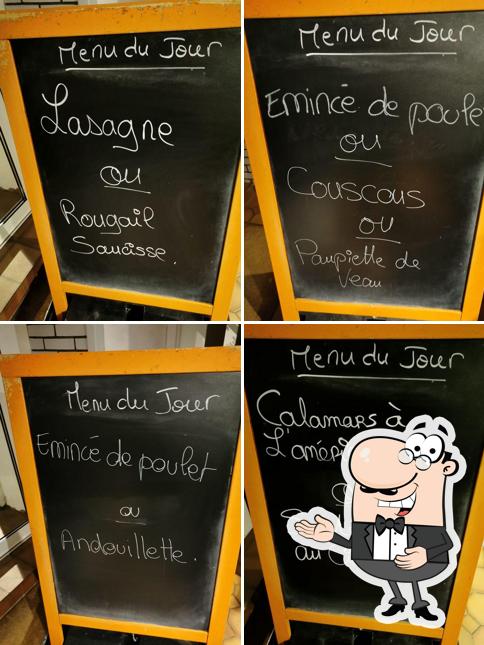 Menu du Jour
Lasagne
ou
Rougail
Saucisse.
Menu du Jour
Emincé de poulet
ou
Couscous
ou
Paupiette de
Veau
Menu du Jour
Emincé de poulet
ou
Andouillette.
Menu du Jour
Calamars à
au